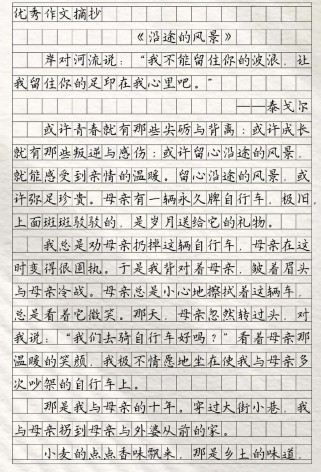 优秀作文摘抄
《沿途的风景》
岸对河流说：“我不能留住你的波浪，让
我留住你的足印在我心里吧。”
——泰戈尔
或许青春就有那些尖砺与背离；或许成长
就有那些叛逆与感伤；或许留心沿途的风景，
就能感受到亲情的温暖。留心沿途的风景，或
许弥足珍贵。母亲有一辆永久牌自行车，极旧，
上面斑斑驳驳的，是岁月送给它的礼物。
我总是劝母亲扔掉这辆自行车，母亲在这
时变得很固执。于是我背对着母亲，皱着眉头
与母亲冷战。母亲总是小心地擦拭着这辆车，
总是看着它微笑。那天，母亲忽然转过头，对
我说：“我们去骑自行车好吗？”看着母亲那
温暖的笑颜，我极不情愿地坐在使我与母亲多
次吵架的自行车上。
那是我与母亲的十年。穿过大街小巷，我
与母亲拐到母亲与外婆从前的家。
小麦的点点香味飘来，那是乡土的味道，